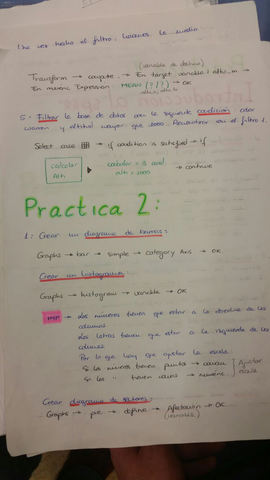 Una vez hecho el filtro. Hacemos la media
(variable de destino)
Transform → compute → En target variable: Alti_m →
En numeric Expression MEAN (?,?) → OK
5- Filtrar la base de datos con la siguiente condición color
y altitud mayor que 1000.
Select cases → if condition is satisfied → if
calcular
Alti
color = 3 and
alti > 1000
→ continue
Practica 2:
1: Crear un diagrama de barras:
Graphs → bar → simple → category Axis → OK
Crear un histograma
Graphs → histogram → variable → OK
→ Los números tienen que estar a la derecha de las
columnas
Las letras tienen que estar a la izquierda de las
columnas
Por lo que hay que ajustar la escala
Si los números tienen puntos →
Si los " tienen → numeric
Ajustar
escala
Crear diagrama de sectores:
Graphs → pie → define → Afectación → OK
(variable)